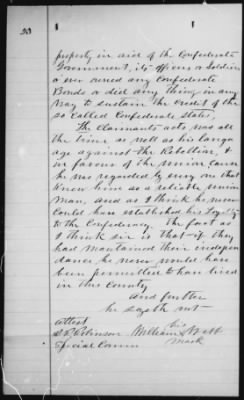 property in aid of the Confederate
Government, its officers or Soldiers
or ever owned any Confederate
Bonds or did any thing in any
way to sustain the credit of the
so called Confederate States,
The Claimants acts was all
the time as well as his langu
age against the Rebellion, &
in favour of the union cause
he was regarded by every one that
Know him as a reliable union
Man, and as I think he never
Could have established his Loyalty
to the Confederacy. The fact is
I think sir is that if they
had maintained their indepen
dance he never would have
been permitted to have lived
in this County
And further
he sayeth not
attest
his
William Bell
mark
Special Comm